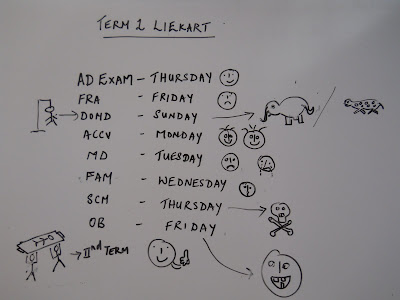 TERM 2 LIEKART
AD EXAM - THURSDAY
FRA - FRIDAY
DOMD - SUNDAY
ACCV - MONDAY
MD - TUESDAY
FAM - WEDNESDAY
SCM - THURSDAY
OB - FRIDAY
IInd TERM